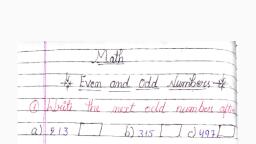 Math
Even and Odd Numbers
① Write the next odd number afte
a) 913 b) 315 c) 497